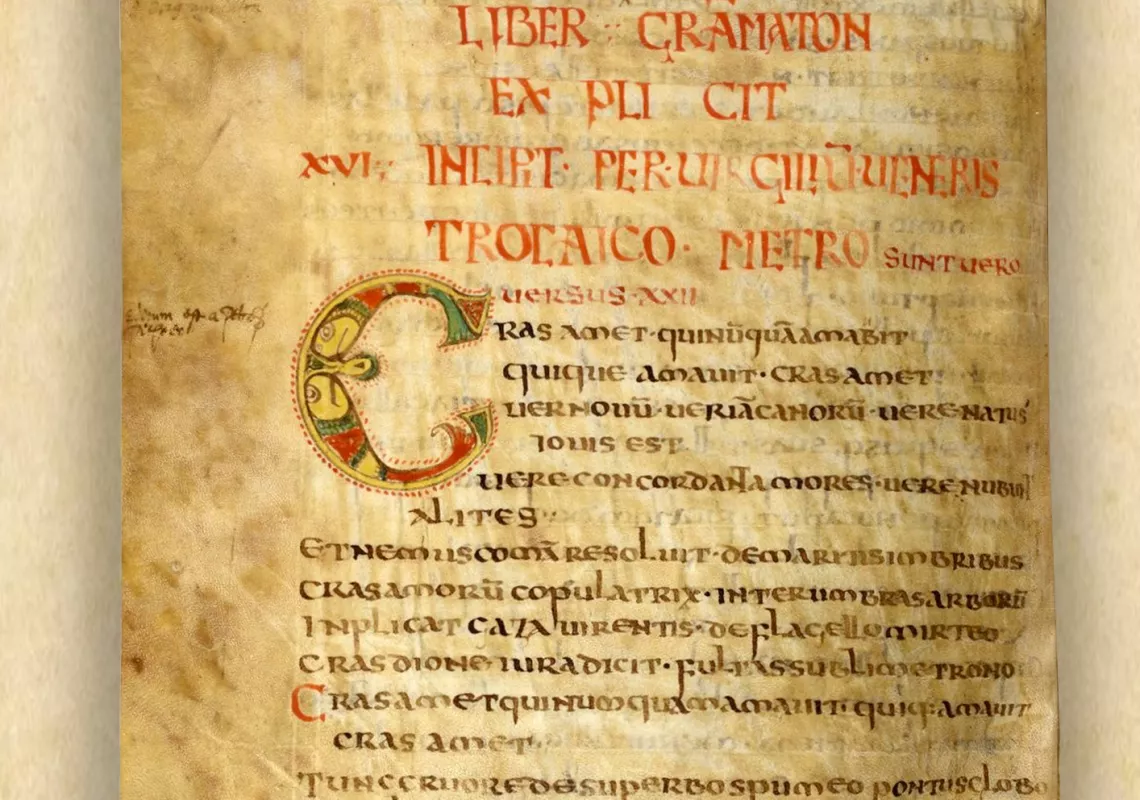 LIBER : GRAMATON
EX PLI CIT
XVI: INCIPIT· PER·UIRGILIŪ·UENERIS
TROCAICO· METRO SUNT UERO
UERSUS·XXII
CRAS AMET·quinū́quāamabit
quique amauit· cras amet:
uer nouū·ueriācanorū·uere natus
iouis est
uere concordant amores·uere nubunt
alites
et nemus comā resoluit·demaritisimbribus
cras amorū copulatrix·inter umbras arborū
inplicat caza uirentis·de flagello mirteo
cras dione iura dicit·fulta ssublime trono
Cras amet qui numquam amauit·quiq: amauit
cras amet
Tunc cruore de superbo spumeo pontus globo